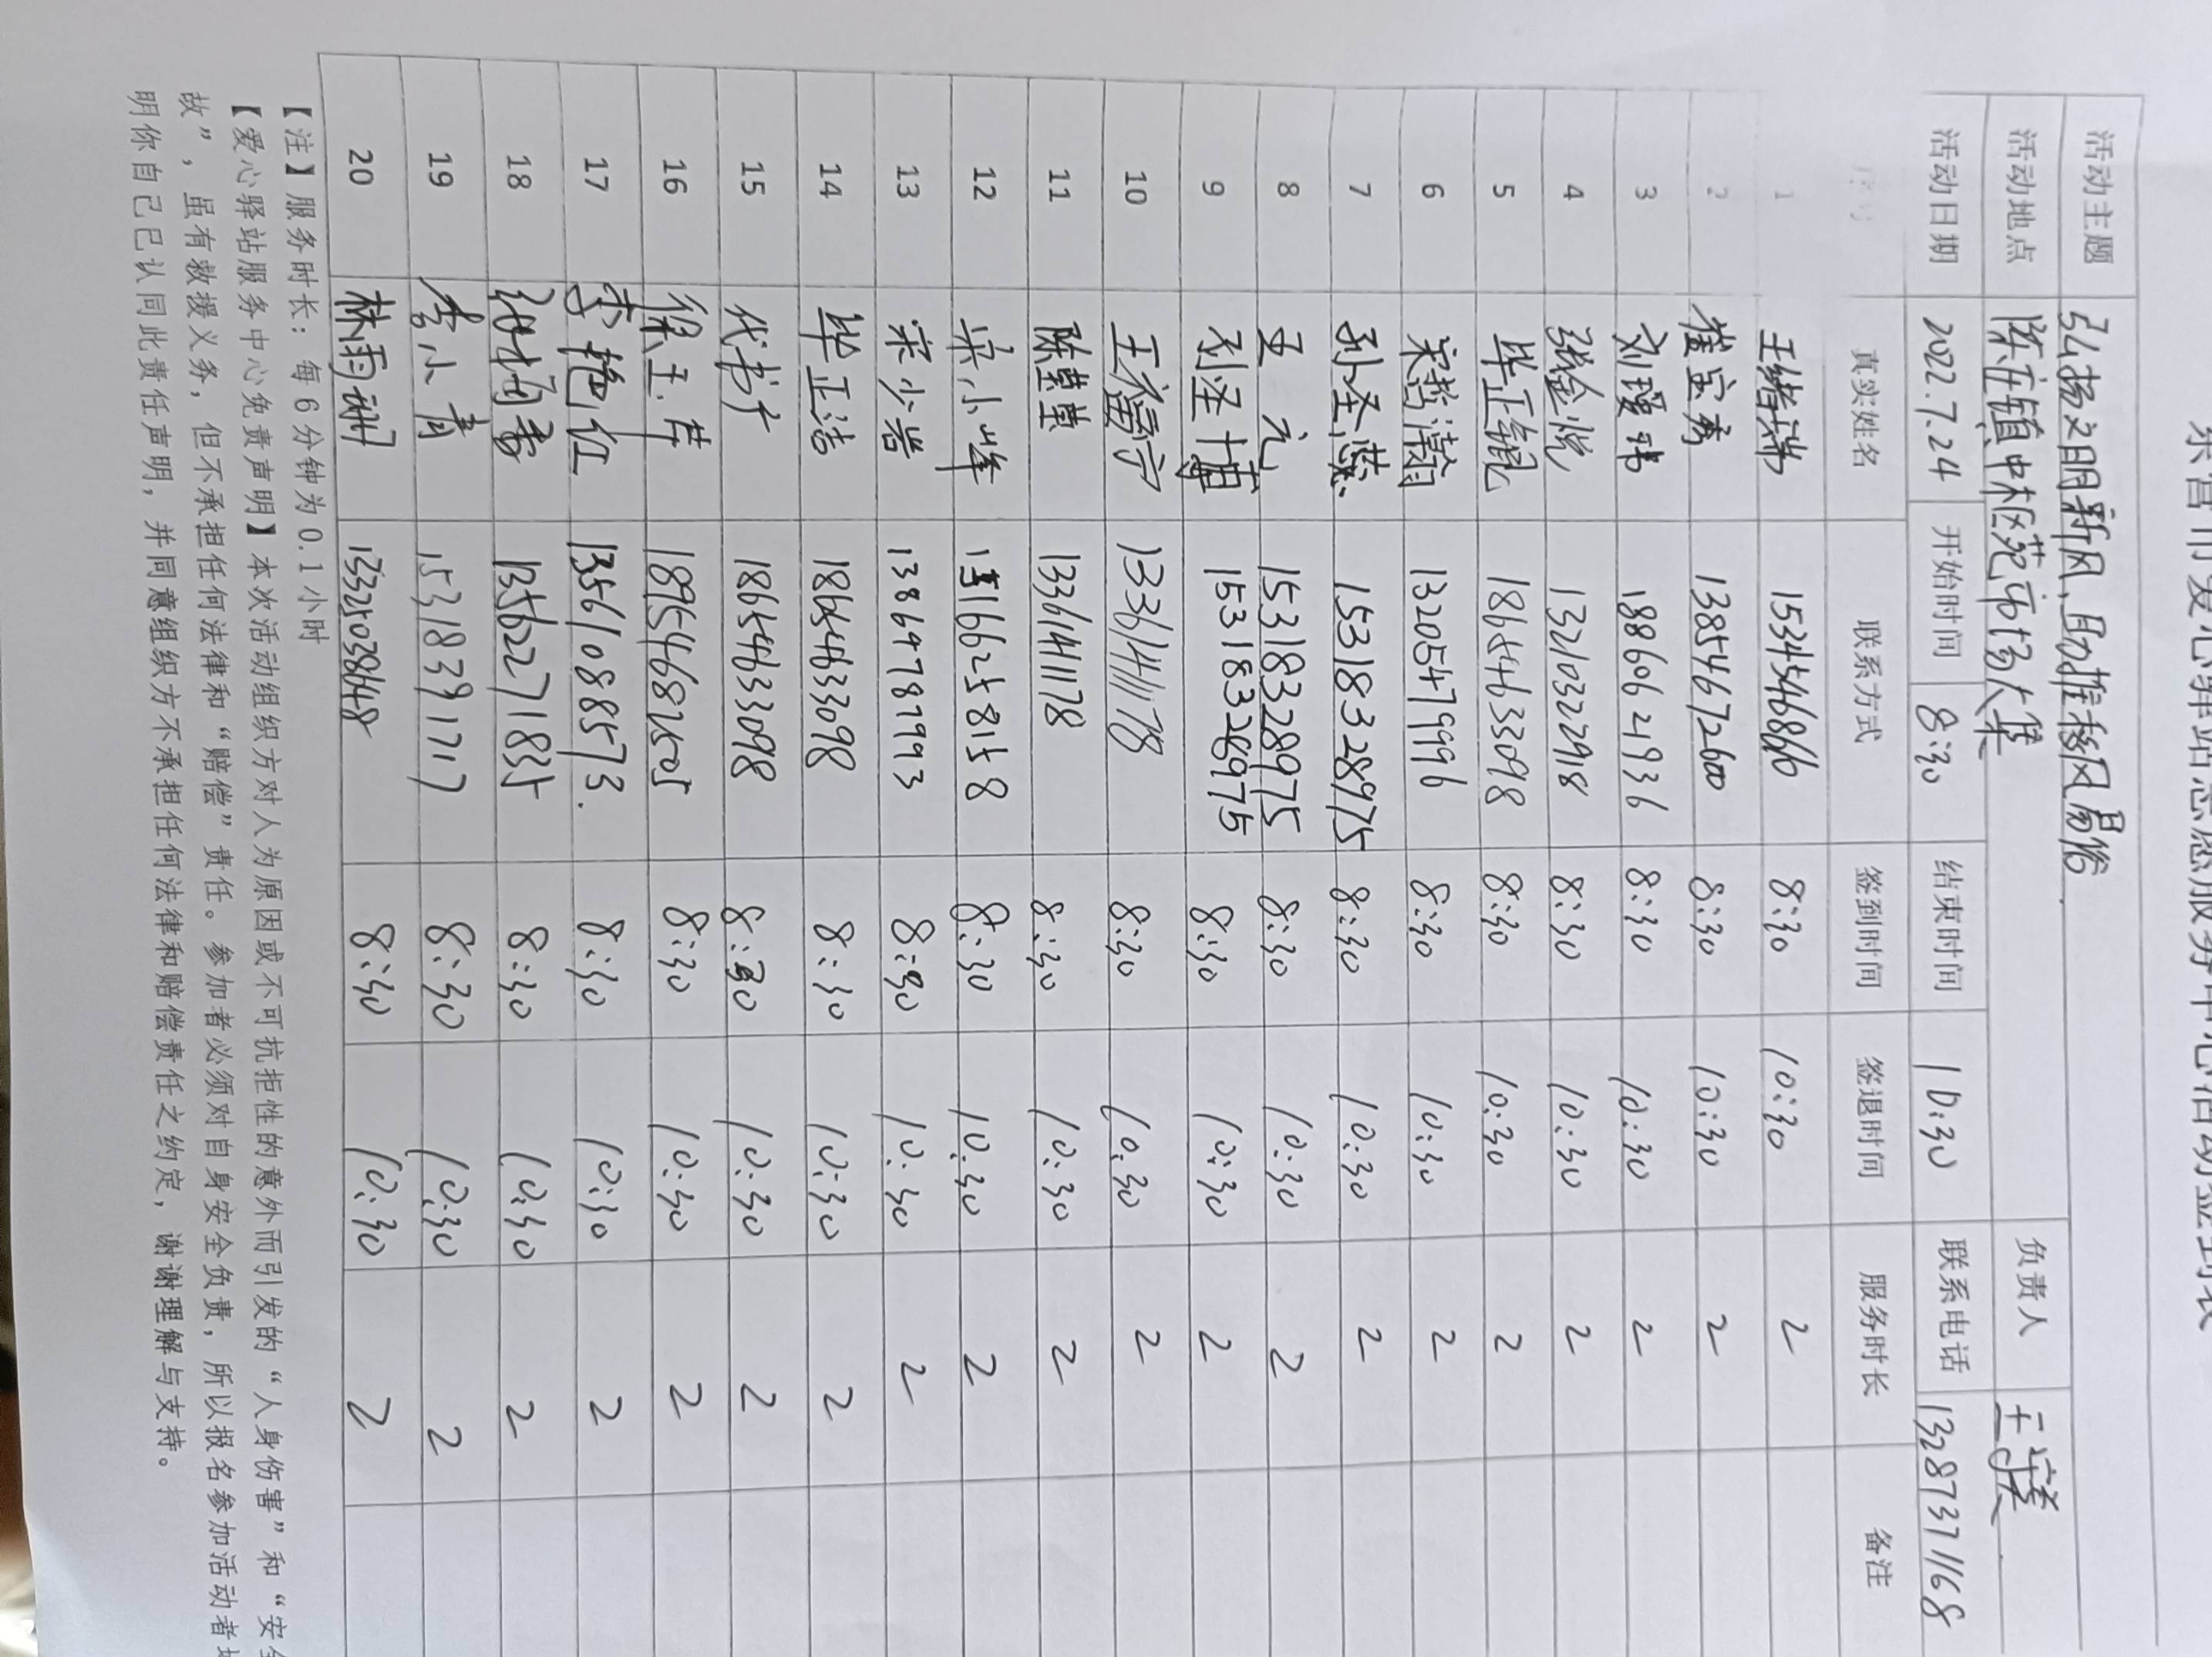 东营市爱心驿站志愿服务中心活动签到表
活动主题 弘扬文明新风、助推移风易俗
活动地点 陈庄镇中枢苑市场大集 负责人
活动日期 2022.7.24 开始时间 8:30 结束时间 10:30 联系电话 13287371168
真实姓名 联系方式 签到时间 签退时间 服务时长 备注
1 王绪瑞 8:30 10:30 2
2 崔宝秀 13854672600 8:30 10:30 2
3 刘瑷玮 18860624936 8:30 10:30 2
4 张金悦 13210322918 8:30 10:30 2
5 毕正锟 18654633098 8:30 10:30 2
6 宋哲瀚 13205479996 8:30 10:30 2
7 孙圣蕊 15318328975 8:30 10:30 2
8 王元 15318328975 8:30 10:30 2
9 15318328975 8:30 10:30 2
10 13361411178 8:30 10:30 2
11 陈莹莹 13361411178 8:30 10:30 2
12 宋小峰 8:30 10:30 2
13 宋少岩 13869787993 8:30 10:30 2
14 毕正浩 18654633098 8:30 10:30 2
15 代书广 18654633098 8:30 10:30 2
16 18954682505 8:30 10:30 2
17 李艳红 13561088573. 8:30 10:30 2
18 13562271835 8:30 10:30 2
19 李小青 15318391717 8:30 10:30 2
20 13325038648 8:30 10:30 2
【注】服务时长：每6分钟为0.1小时
【爱心驿站服务中心免责声明】本次活动组织方对人为原因或不可抗拒性的意外而引发的“人身伤害”和“安全
故”，虽有救援义务，但不承担任何法律和“赔偿”责任。参加者必须对自身安全负责，所以报名参加活动者
明你自己已认同此责任声明，并同意组织方不承担任何法律和赔偿责任之约定，谢谢理解与支持。